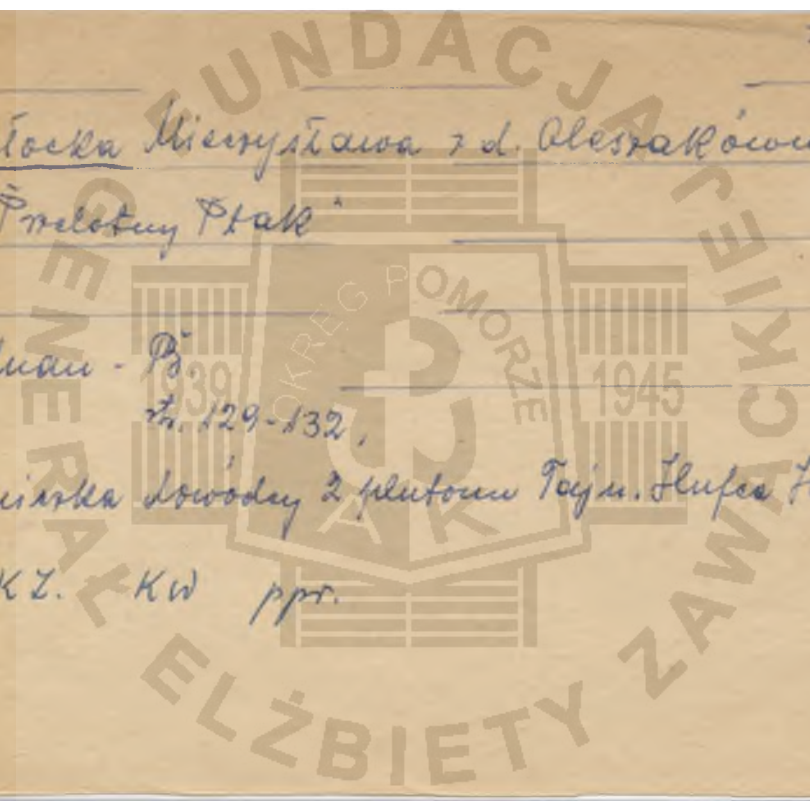 łocka Mieczysława z d. Oleszaków
"Przelotny Ptak"
str. 129-132,
dowódcy 2 plutonu Tajn. Hufca H
KZ. KW ppr.
FUNDACJA
GENERAŁ ELŻBIETY ZAWACKIEJ
OKRĘG POMORZE
1939 1945
AK